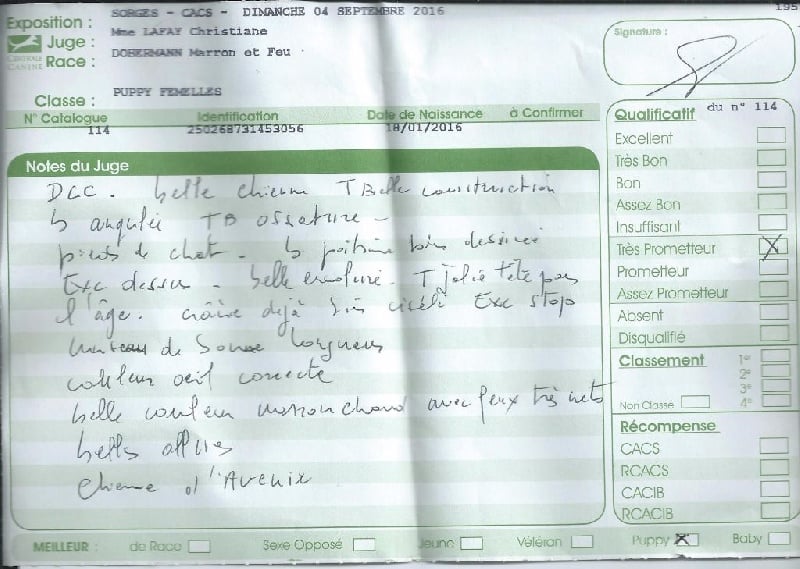 Exposition : SORGES - CACS - DIMANCHE 04 SEPTEMBRE 2016
195
CENTRALE CANINE
Juge : Mme LAFAY Christiane
Race : DOBERMANN Marron et Feu
Classe : PUPPY FEMELLES
N° Catalogue Identification Date de Naissance à Confirmer
114 250268731453056 18/01/2016
Signature :
Notes du Juge
DCC. belle chienne TBelle construction
b angulée TB ossature -
pieds de chat - b poitrine bien dessinée
Exc dessus - belle encolure. T jolie tête pour
l'âge. crâne déjà bien ciselé Exc stop
museau de bonne longueur
couleur oeil correcte
belle couleur marron chaud avec feux très nets
belles allures
chienne d'Avenir
Qualificatif du n° 114
Excellent
Très Bon
Bon
Assez Bon
Insuffisant
Très Prometteur X
Prometteur
Assez Prometteur
Absent
Disqualifié
Classement 1e
2e
3e
Non Classé 4e
Récompense
CACS
RCACS
CACIB
RCACIB
MEILLEUR : de Race Sexe Opposé Jeune Vétéran Puppy X Baby